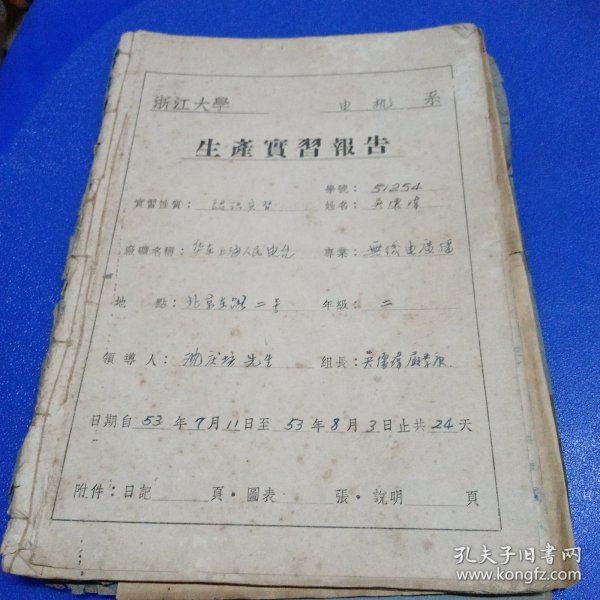 浙江大學 电机 系
生產實習報告
學號： 51254
實習性質： 認識实習 姓名： 吴懷
廠礦名稱： 华东上海人民电台 專業： 無綫电广播
地點： 北京东路二号 年級： 二
領導人： 先生 組長： 吴懷
日期自 53 年 7 月 11 日至 53 年 8 月 3 日止共 24 天
附件：日記 頁·圖表 張·說明 頁
孔夫子旧书网
www.kongfz.com